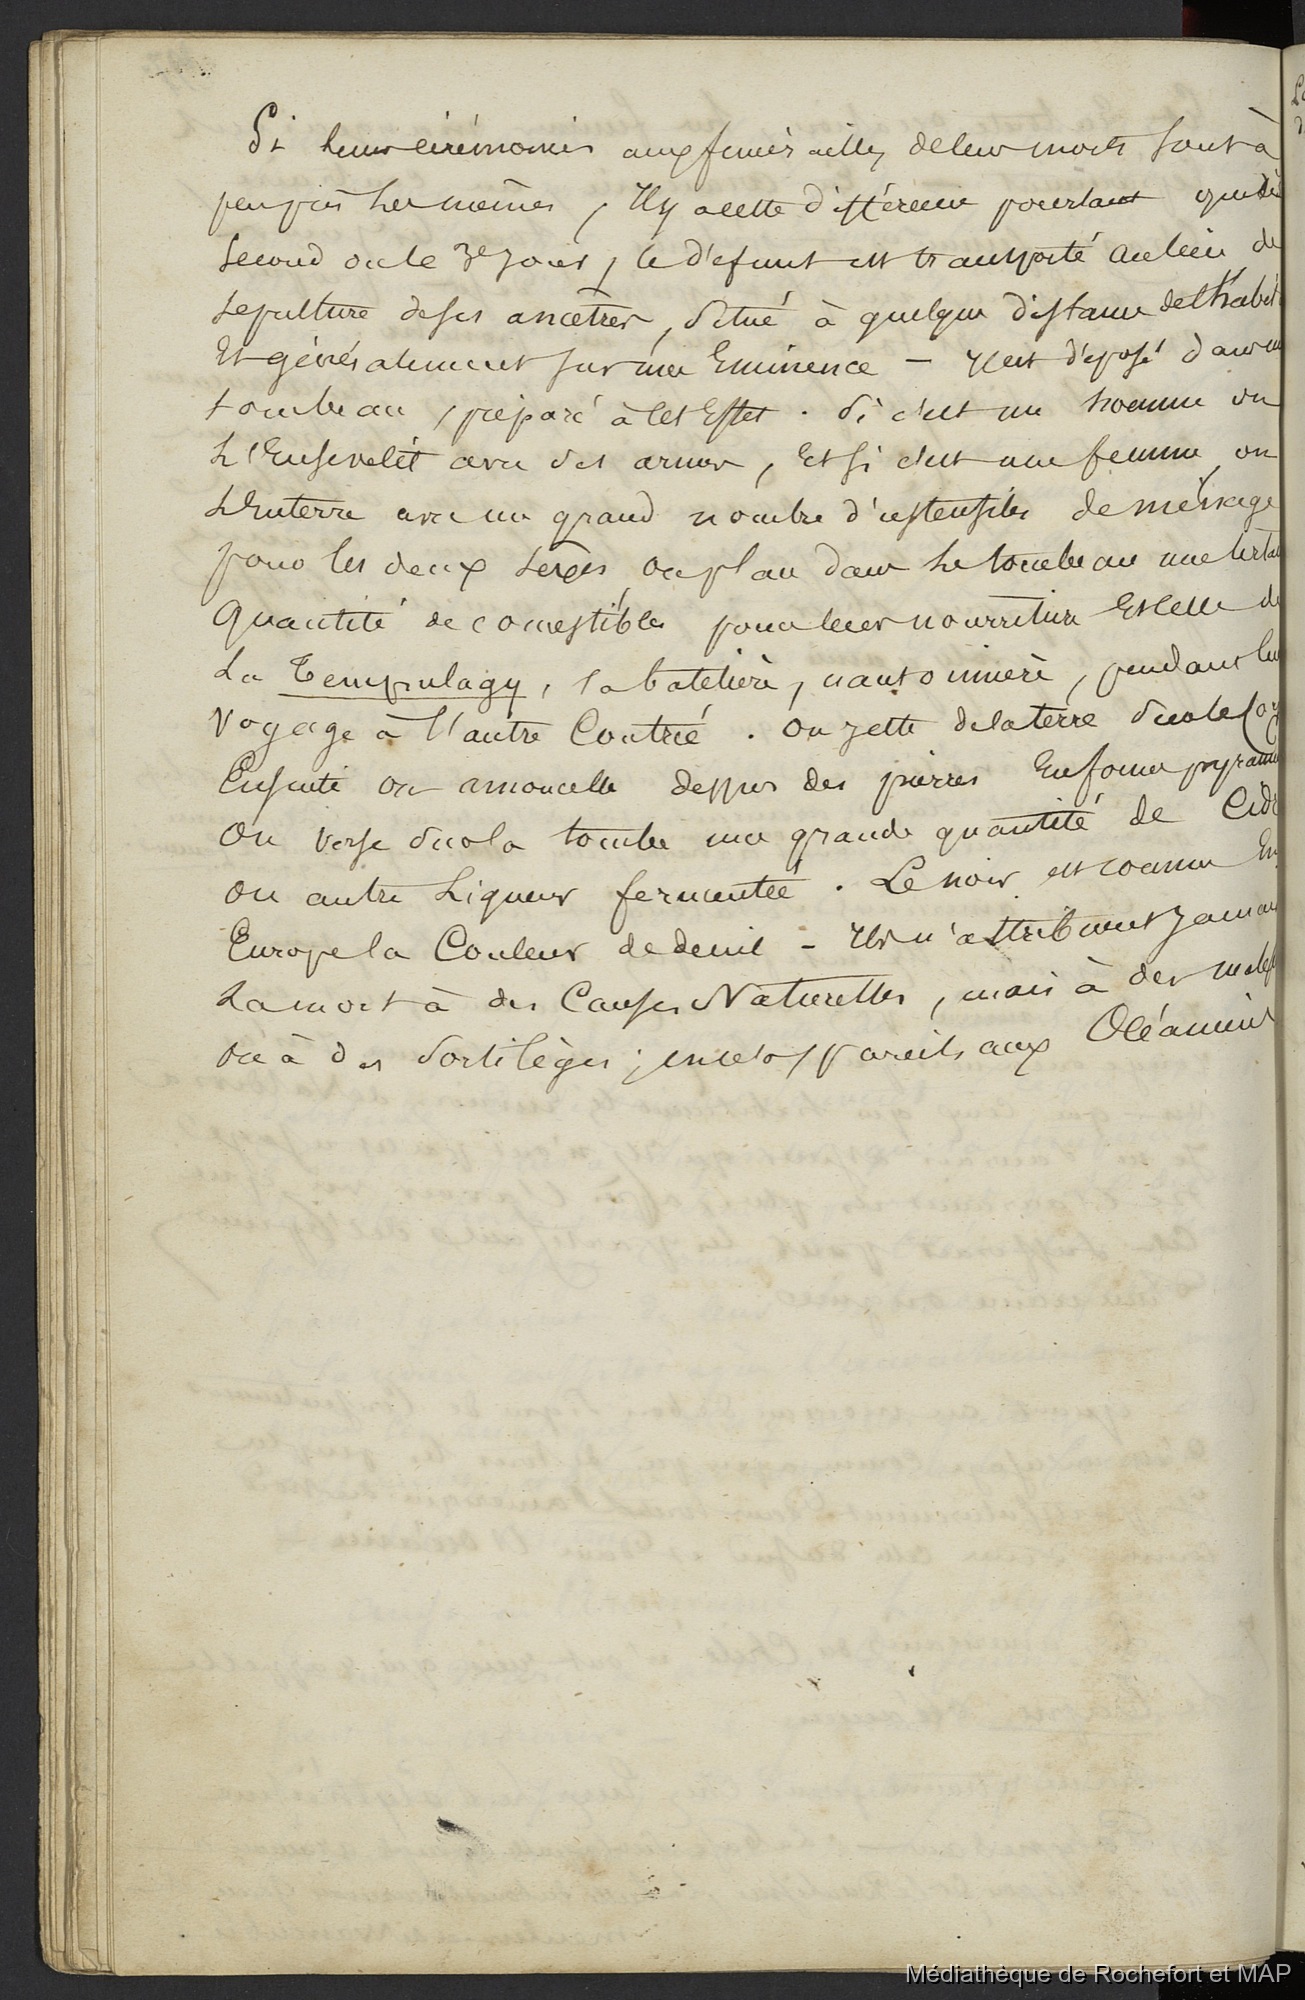 Si leurs cérémonies aux funérailles de leur morts sont à
peu près les mêmes, Il y a cette différence pourtant que dès
second ou le 3e jour, le défunt est transporté au lieu de
sepulture de ses ancêtres, situé à quelque distance de l'habit
Et généralement sur une Eminence — Il est déposé dans un
tombeau, préparé à cet Effet. Si c'est un homme on
L'Ensevelit avec des armes, Et si c'est une femme, on
L'Enterre avec un grand nombre d'ustensiles de ménage
pour les deux sexes on place dans le tombeau une certai
Quantité de comestibles pour leur nourriture Et celle de
La Tempulagy, la batelière, nautonnière, pendant leu
Voyage à l'autre Contrée. on jette de la terre sur le Cor
Ensuite on amoncelle dessus des pierres En forme pyrami
On verse sur la tombe une grande quantité de Cidr
ou autre Liqueur fermentée. Le noir est comme En
Europe la Couleur de deuil — Ils n'attribuent Jamai
La mort à des Causes Naturelles, mais à des malef
ou à des Sortilèges; en cela pareils aux Océanien
Médiathèque de Rochefort et MAP